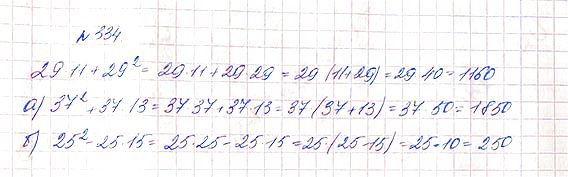 № 334
29·11+29² = 29·11+29·29 = 29(11+29) = 29·40 = 1160
а) 37²+37·13 = 37·37+37·13 = 37(37+13) = 37·50 = 1850
б) 25²-25·15 = 25·25-25·15 = 25(25-15) = 25·10 = 250